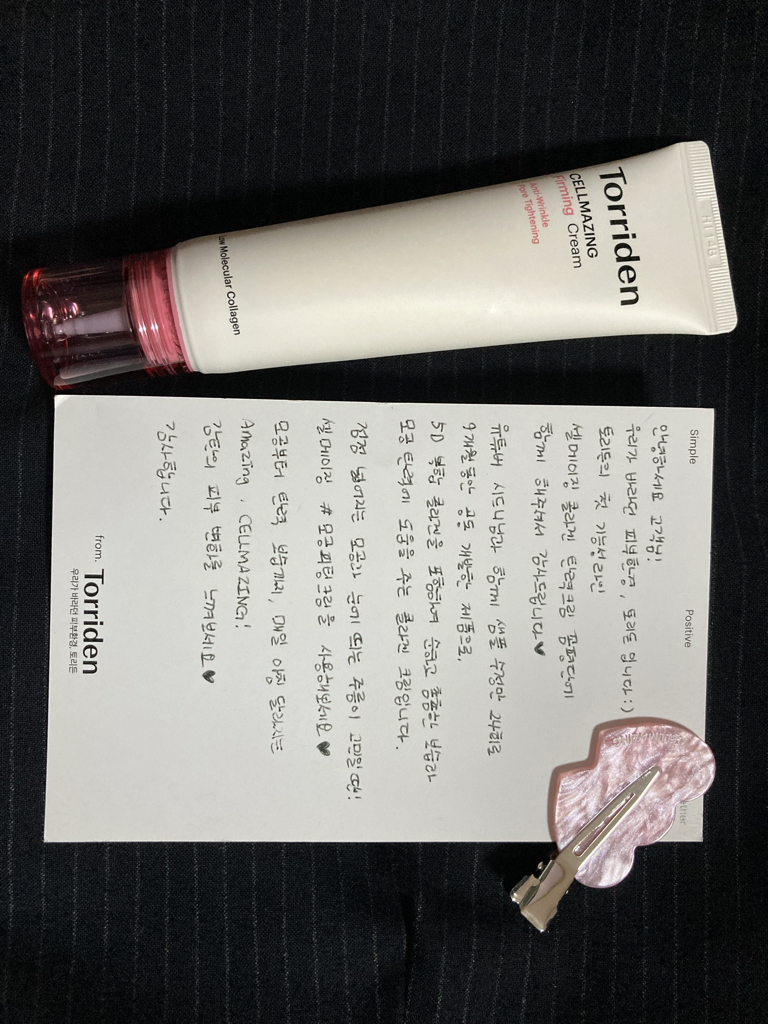 Torriden
CELLMAZING
Firming Cream
Anti-Wrinkle
Pore Tightening
Low Molecular Collagen
Simple Positive
안녕하세요 고객님!
우리가 바라던 피부환경, 토리든 입니다 :)
토리든의 첫 기능성라인
셀메이징 콜라겐 탄력크림 품평단에
함께 해주셔서 감사드립니다♥
유튜버 시드니님과 함께 샘플 수정만 24회로
9개월동안 공동 개발한 제품으로,
5D 복합 콜라겐을 포함하여 순하고 촘촘한 보습과
모공 탄력에 도움을 주는 콜라겐 크림입니다.
점점 넓어지는 모공과 눈에 띄는 주름이 고민일 땐!
셀메이징 #모공퍼팅크림을 사용해보세요♥
모공부터 탄력 보습까지, 매일 아침 달라지는
Amazing, CELLMAZING!
감탄의 피부 변화를 느껴보세요♥
감사합니다.
from. Torriden
우리가 바라던 피부환경, 토리든